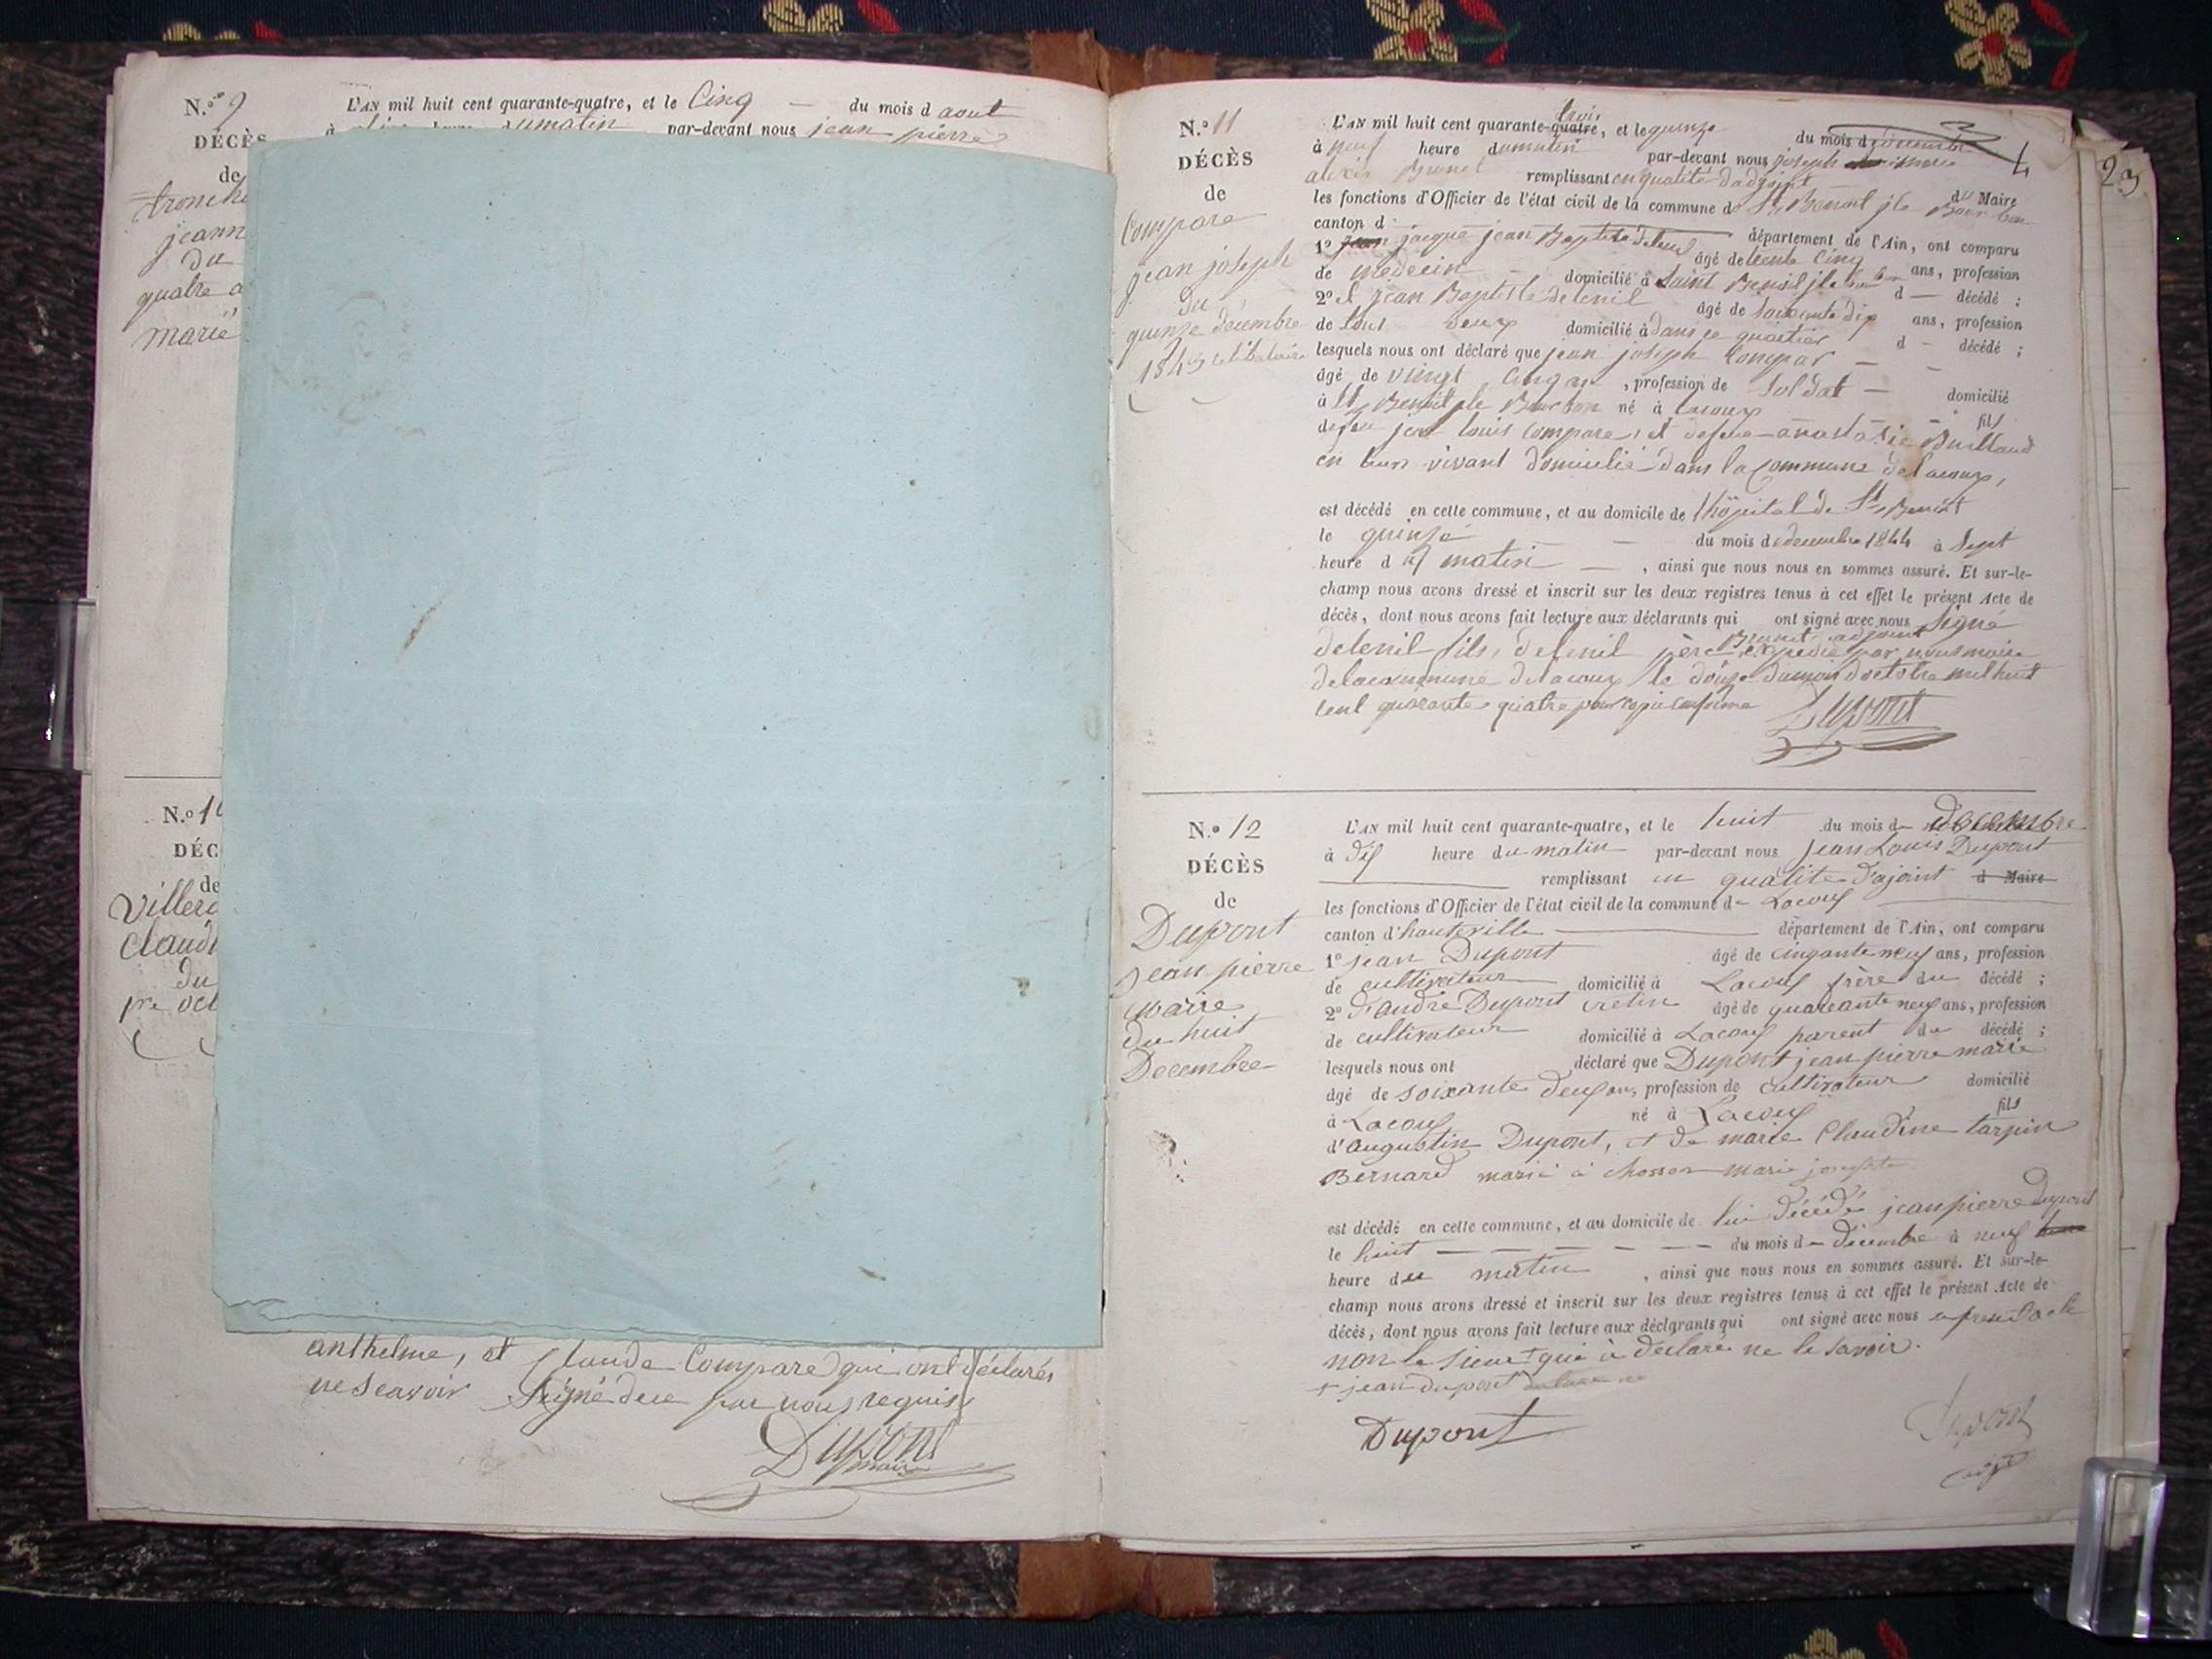 N.º 9
L'AN mil huit cent quarante-quatre, et le Cinq du mois d aout
DÉCÈS
dumatin par-devant nous jean pierre
de
jeann
du
quatre a
marié
N.º 1
DÉC
de
Claud
du
pre oct
anthelme, et Claude Compare qui ont déclarés
ne Scavoir Signé dece par nous requis
Dupont
maire
N.º 11
DÉCÈS
de
Compare
jean joseph
du
quinze décembre
1843 célibataire
23
4
trois
L'AN mil huit cent quarante-quatre, et le quinze du mois d décembre
à neuf heure dumatin par-devant nous joseph
alexis Brunet remplissant en qualité dadjoint du Maire
les fonctions d'Officier de l'état civil de la commune de St Benoit jle Bourbon
canton d département de l'Ain, ont comparu
1º jean jacque jean Baptiste deleuil âgé de trente cinq ans, profession
de medecin domicilié à Saint Benoit jle d décédé ;
2º et jean Baptiste deleuil âgé de soixante dix ans, profession
de tout deux domicilié à dans ce quartier d décédé ;
lesquels nous ont déclaré que jean joseph Compar
âgé de vingt cinq ans, profession de Soldat domicilié
à St Benoit jle Bourbon né à lacoux fils
de feu jean louis Compare, et defeue anastasie Buillaud
en leurs vivant domicilié dans la commune delacoux,
est décédé en cette commune, et au domicile de lhôpital de St Benoit
le quinze du mois de decembre 1844 à Sept
heure d u matin , ainsi que nous nous en sommes assuré. Et sur-le-
champ nous avons dressé et inscrit sur les deux registres tenus à cet effet le présent Acte de
décès, dont nous avons fait lecture aux déclarants qui ont signé avec nous Signé
deleuil fils, deleuil père, Brunet adjoint expédié par nous maire
delacommune delacoux le douze dumois doctobre mil huit
cent quarante quatre pour copie conforme
Dupont
N.º 12
DÉCÈS
de
Dupont
Jean pierre
marie
du huit
Decembre
L'AN mil huit cent quarante-quatre, et le huit du mois d Décembre
à dix heure du matin par-devant nous Jean Louis Dupont
remplissant en qualité d'ajoint d Maire
les fonctions d'Officier de l'état civil de la commune de Lacoux
canton d'hauteville département de l'Ain, ont comparu
1º jean Dupont âgé de cinquante neuf ans, profession
de cultivateur domicilié à Lacoux frère du décédé ;
2º d'andré Dupont âgé de quareante neuf ans, profession
de cultivateur domicilié à Lacoux parent du décédé ;
lesquels nous ont déclaré que Dupont jean pierre marie
âgé de soixante deux ans, profession de cultivateur domicilié
à Lacoux né à Lacoux fils
d'augustin Dupont, et de marie Claudine tarpin
Bernard marié à chosson marie josephte
est décédé en cette commune, et au domicile de lui décédé jean pierre Dupont
le huit du mois de Décembre à neuf
heure du matin , ainsi que nous nous en sommes assuré. Et sur-le-
champ nous avons dressé et inscrit sur les deux registres tenus à cet effet le présent Acte de
décès, dont nous avons fait lecture aux déclarants qui ont signé avec nous
non le sieur + qui à déclaré ne le savoir.
+ jean dupont
Dupont
Dupont
adjt